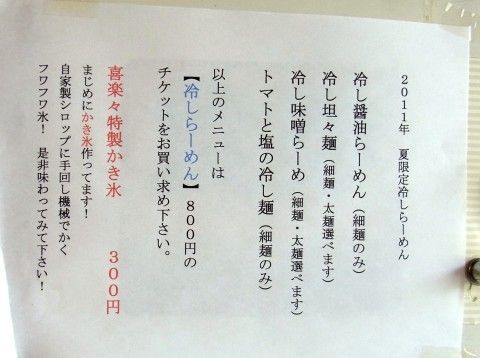 2011年 夏限定冷しらーめん
冷し醤油らーめん（細麺のみ）
冷し坦々麺（細麺・太麺選べます）
冷し味噌らーめ（細麺・太麺選べます）
トマトと塩の冷し麺（細麺のみ）
以上のメニューは
【冷しらーめん】８００円の
チケットをお買い求め下さい。
喜楽々特製かき氷 ３００円
まじめにかき氷作ってます！
自家製シロップに手回し機械でかく
フワフワ氷！ 是非味わってみて下さい！